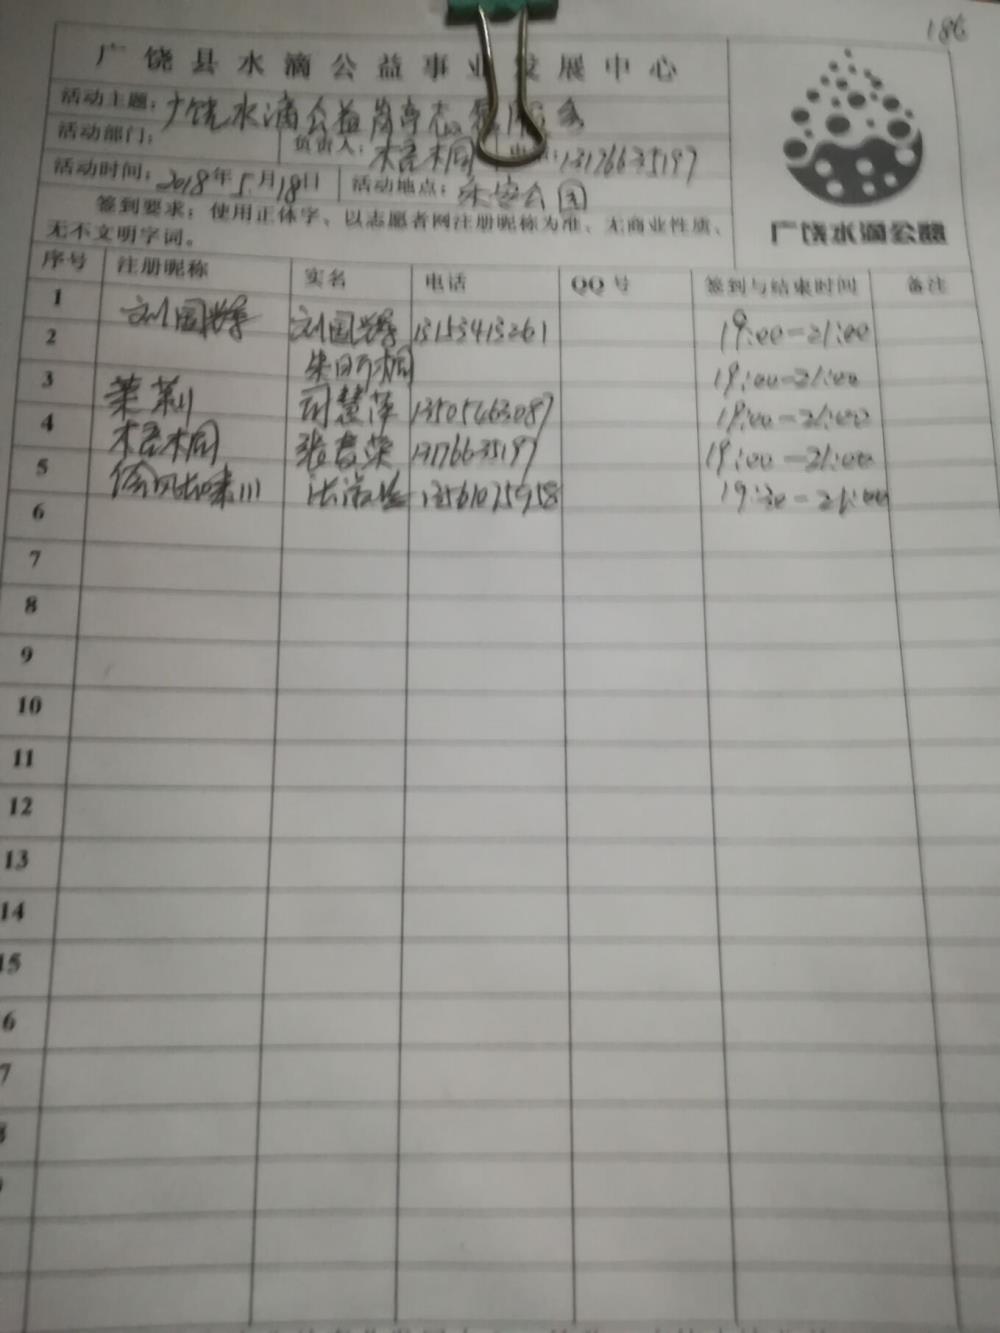 186
广饶县水滴公益事业发展中心
活动主题：广饶水滴公益岗亭志愿服务
活动部门： 负责人：梧桐 电话：13176635197
活动时间：2018年5月18日 活动地点：乐安公园
签到要求：使用正体字、以志愿者网注册昵称为准、无商业性质、
无不文明字词。
广饶水滴公益
序号 注册昵称 实名 电话 QQ号 签到与结束时间 备注
1 刘国辉 刘国辉 13153413261 19:00-21:00
2 19:00-21:00
3 茉莉 慧萍 13505463087 19:00-21:00
4 梧桐 张春荣 13176635197 19:00-21:00
5 13561075958 19:30-21:00
6
7
8
9
10
11
12
13
14
15
6
7
8